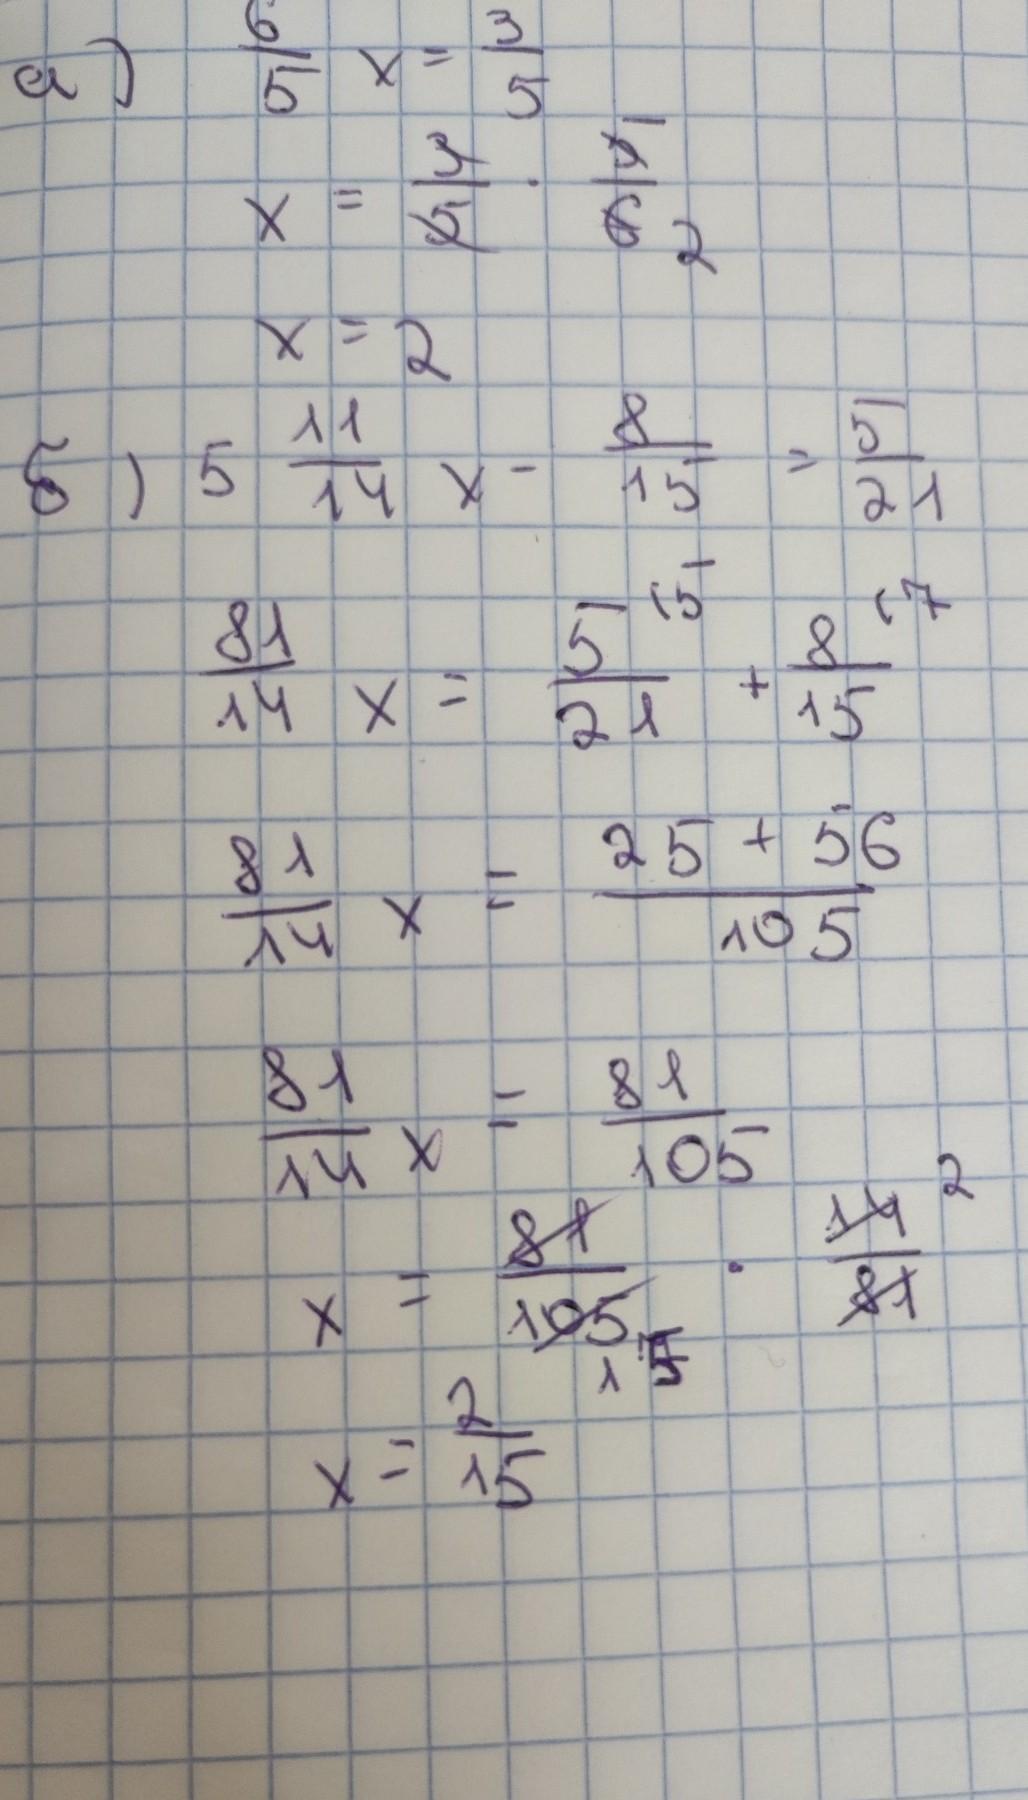 а) 6/5 x = 3/5
x = 3/5 · 5/6 2
x = 2
б) 5 11/14 x - 8/15 = 5/21
81/14 x = 5/21 (5 + 8/15 (7
81/14 x = 25 + 56/105
81/14 x = 81/105
x = 81/105 15 · 14/81 2
x = 2/15